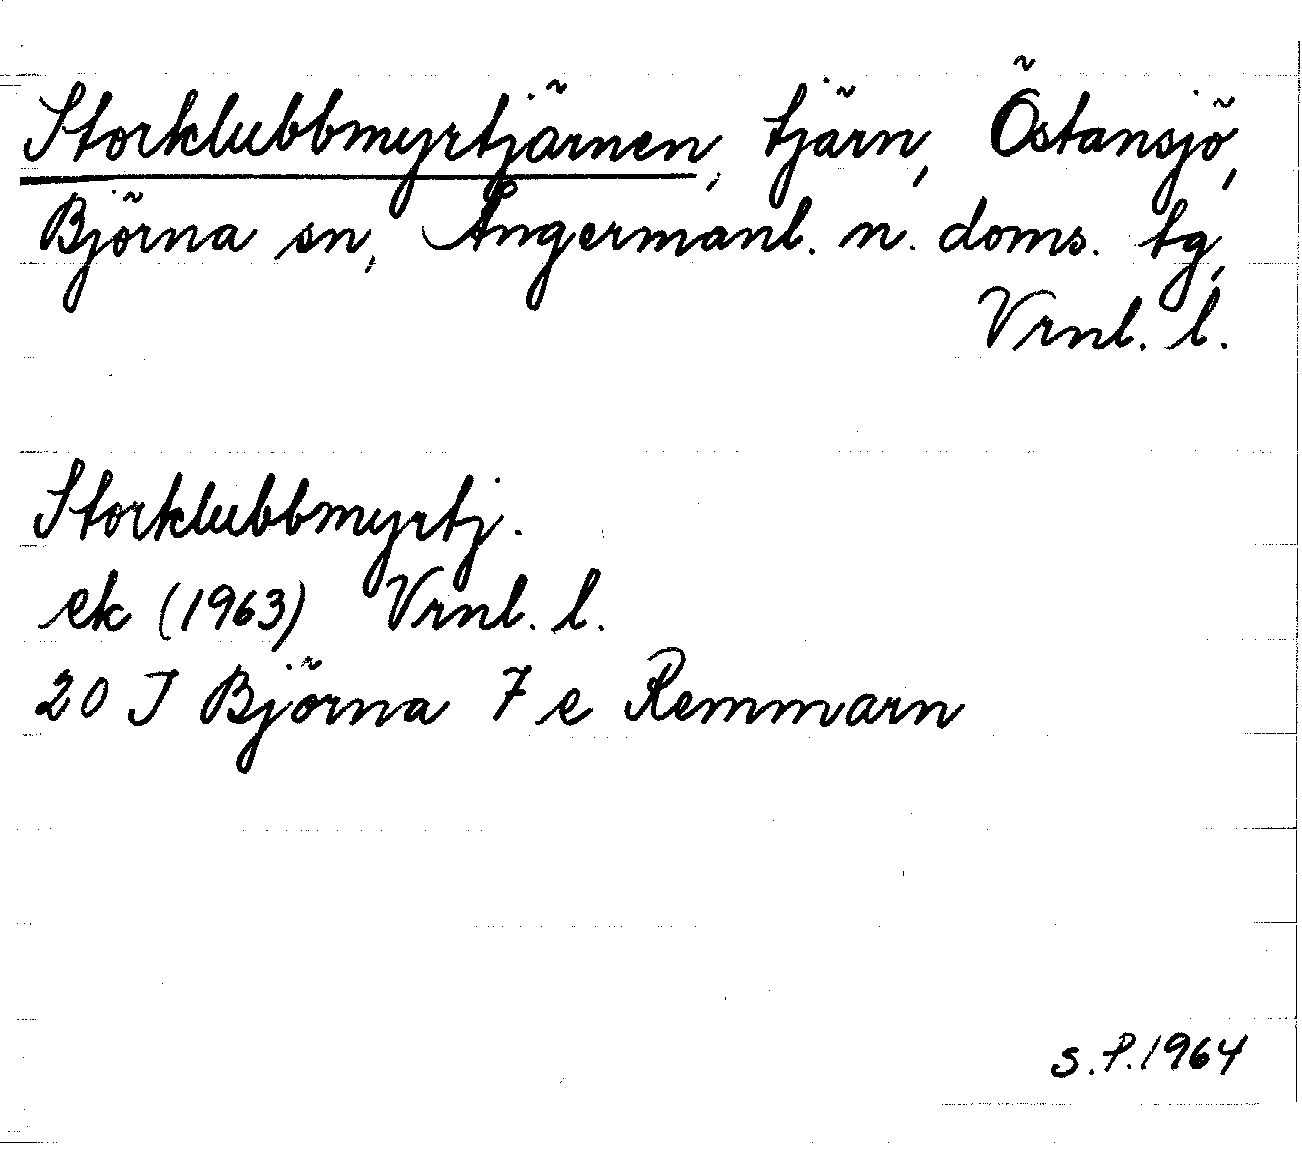 Storklubbmyrtjärnen, tjärn, Östansjö,
Björna sn, Ångermanl. n. doms. tg,
Vrnl. l.
Storklubbmyrtj.
ek (1963) Vrnl. l.
20 J Björna 7 e Remmarn
S.P.1964